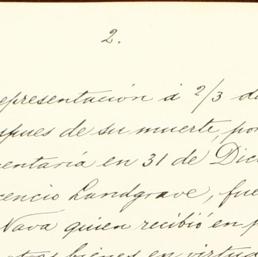 2.
epresentación á 2/3 de
spues de su muerte, por
entaría en 31 de Dic
cencio Landgrave, fue
Nava quien recibió en p
otros bienes en virtud